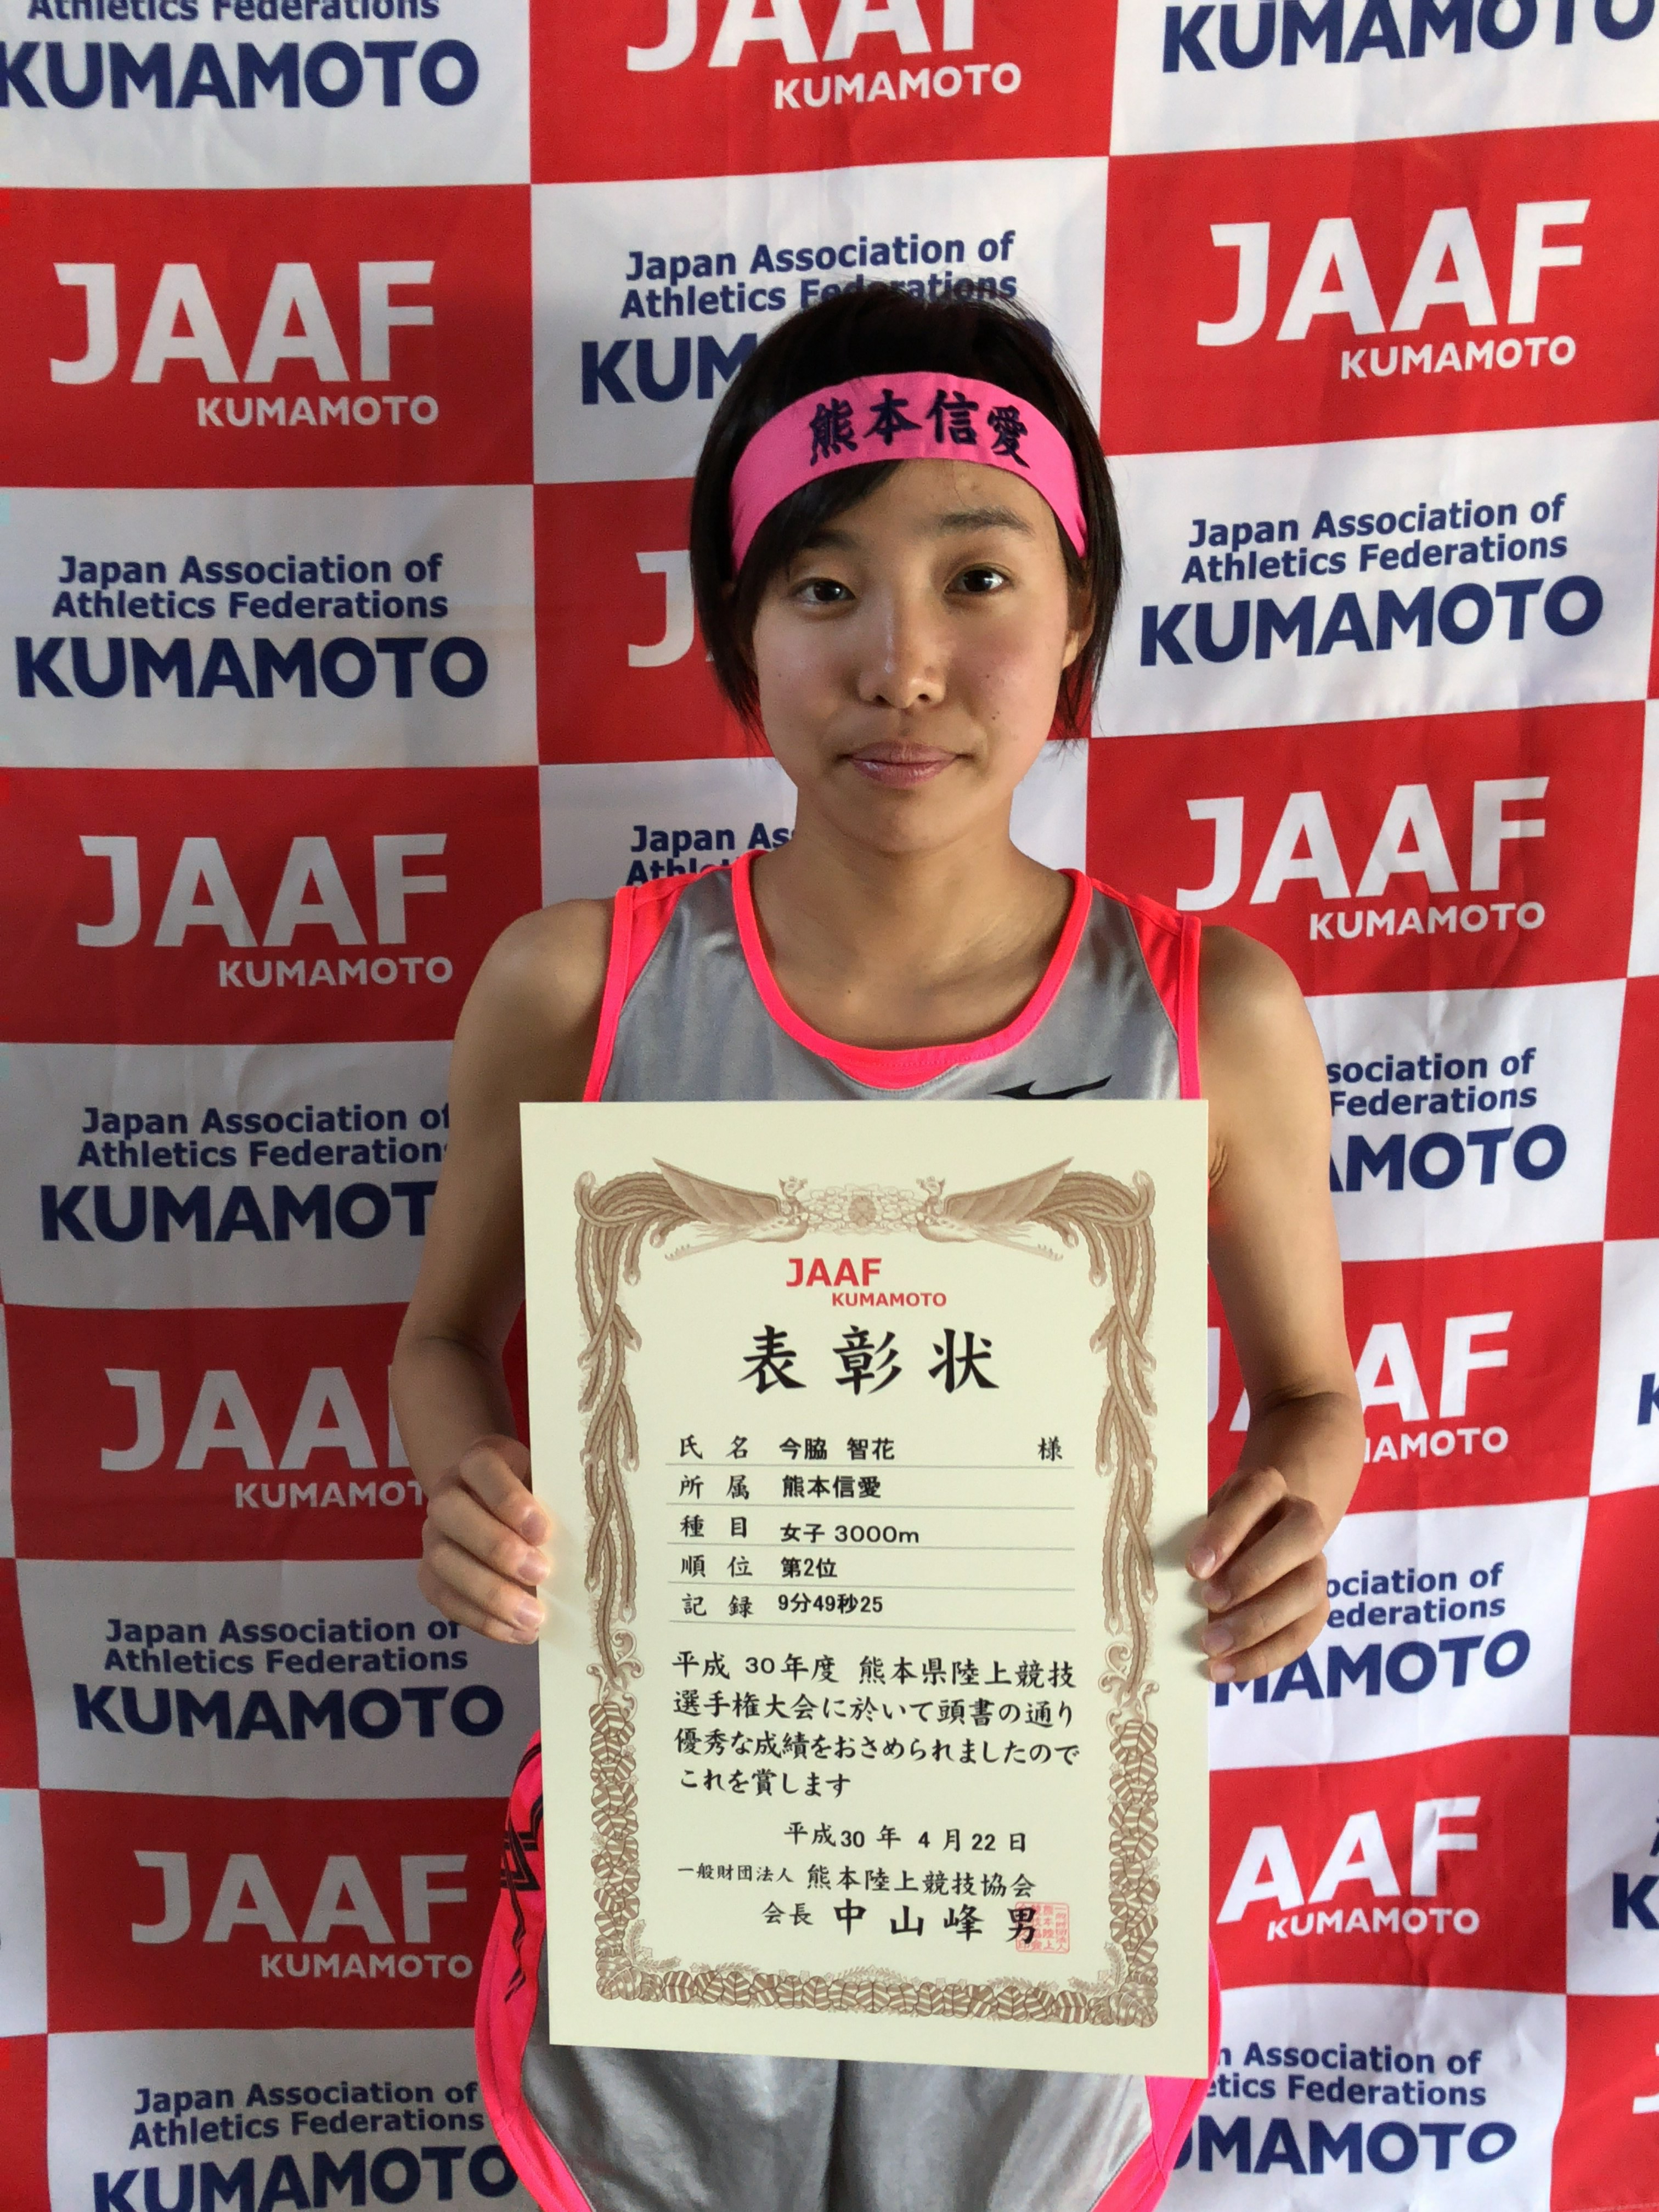 Athletics Federations
KUMAMOTO
JAAF
KUMAMOTO
KUMAMOTO
JAAF
KUMAMOTO
Japan Association of
Athletics Federations
JAAF
KUMAMOTO
熊本信愛
Japan Association of
Athletics Federations
KUMAMOTO
Japan Association of
Athletics Federations
KUMAMOTO
JAAF
KUMAMOTO
Japan
JAAF
KUMAMOTO
Japan Association of
Athletics
KUMAMOT
sociation of
Federations
AMOTO
JAA
KUMAMOT
AAF
AMOTO
Japan Association of
Athletics Federations
KUMAMOTO
ociation of
ederations
MAMOTO
JAAF
KUMAMOTO
AAF
KUMAMOTO
Japan Association of
Athletics Federations
KUMAMOTO
Association of
etics Federations
UMAMOTO
JAAF
KUMAMOTO
表彰状
氏名 今脇 智花 様
所属 熊本信愛
種目 女子 3000m
順位 第2位
記録 9分49秒25
平成 30年度 熊本県陸上競技
選手権大会に於いて頭書の通り
優秀な成績をおさめられましたので
これを賞します
平成30年 4月22日
一般財団法人 熊本陸上競技協会
会長 中山峰男